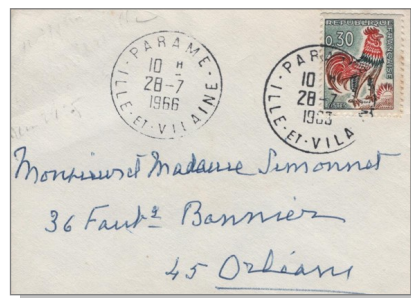 PARAME
10 H
28-7
1966
ILLE-ET-VILAINE
REPUBLIQUE
0,30
PAR
10
28-7
ILLE-ET-VILA
Monsieur et Madame Simonnet
36 Faubg Bannier
45 Orléans